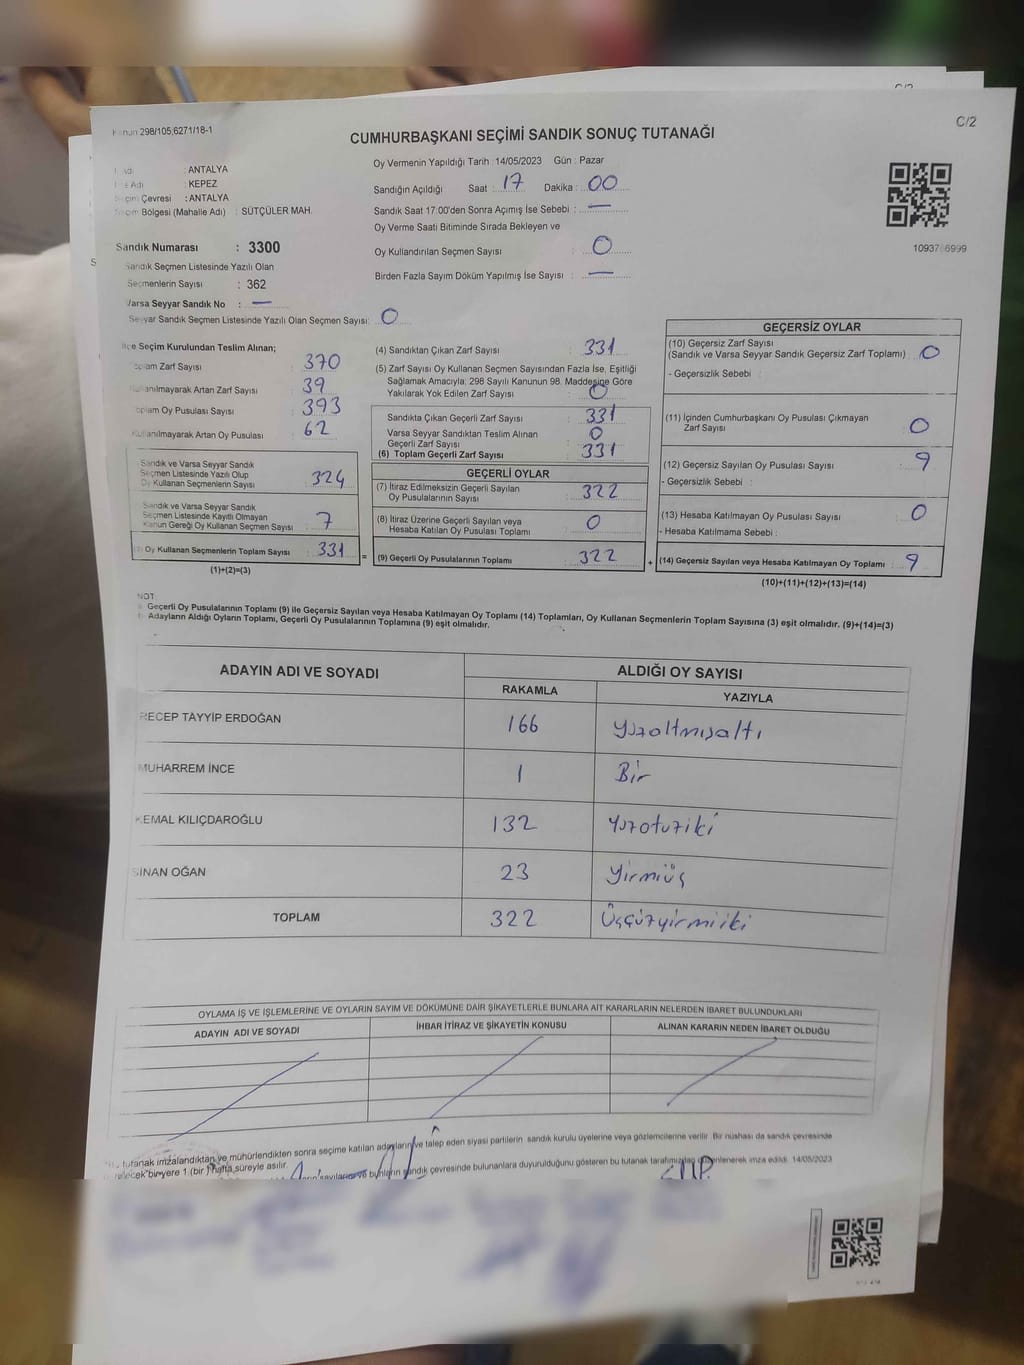 Kanun 298/105;6271/18-1
C/2
CUMHURBAŞKANI SEÇİMİ SANDIK SONUÇ TUTANAĞI
: ANTALYA
: KEPEZ
Seçim Çevresi : ANTALYA
Seçim Bölgesi (Mahalle Adı) : SÜTÇÜLER MAH.
Sandık Numarası : 3300
Sandık Seçmen Listesinde Yazılı Olan
Seçmenlerin Sayısı : 362
Varsa Seyyar Sandık No : —
Seyyar Sandık Seçmen Listesinde Yazılı Olan Seçmen Sayısı: 0
Oy Vermenin Yapıldığı Tarih : 14/05/2023 Gün : Pazar
Sandığın Açıldığı Saat : 17 Dakika : 00
Sandık Saat 17:00'den Sonra Açımış İse Sebebi : —
Oy Verme Saati Bitiminde Sırada Bekleyen ve
Oy Kullandırılan Seçmen Sayısı : 0
Birden Fazla Sayım Döküm Yapılmış İse Sayısı : —
İlçe Seçim Kurulundan Teslim Alınan;
Toplam Zarf Sayısı : 370
Kullanılmayarak Artan Zarf Sayısı : 39
Toplam Oy Pusulası Sayısı : 393
Kullanılmayarak Artan Oy Pusulası : 62
Sandık ve Varsa Seyyar Sandık
Seçmen Listesinde Yazılı Olup
Oy Kullanan Seçmenlerin Sayısı : 324
Sandık ve Varsa Seyyar Sandık
Seçmen Listesinde Kayıtlı Olmayan
Kanun Gereği Oy Kullanan Seçmen Sayısı : 7
Oy Kullanan Seçmenlerin Toplam Sayısı : 331 =
(1)+(2)=(3)
(4) Sandıktan Çıkan Zarf Sayısı : 331
(5) Zarf Sayısı Oy Kullanan Seçmen Sayısından Fazla İse, Eşitliği
Sağlamak Amacıyla; 298 Sayılı Kanunun 98. Maddesine Göre
Yakılarak Yok Edilen Zarf Sayısı : 0
Sandıkta Çıkan Geçerli Zarf Sayısı : 331
Varsa Seyyar Sandıktan Teslim Alınan
Geçerli Zarf Sayısı : 0
(6) Toplam Geçerli Zarf Sayısı : 331
GEÇERLİ OYLAR
(7) İtiraz Edilmeksizin Geçerli Sayılan
Oy Pusulalarının Sayısı : 322
(8) İtiraz Üzerine Geçerli Sayılan veya
Hesaba Katılan Oy Pusulası Toplamı : 0
(9) Geçerli Oy Pusulalarının Toplamı : 322 +
1093766999
GEÇERSİZ OYLAR
(10) Geçersiz Zarf Sayısı
(Sandık ve Varsa Seyyar Sandık Geçersiz Zarf Toplamı) : 0
- Geçersizlik Sebebi :
(11) İçinden Cumhurbaşkanı Oy Pusulası Çıkmayan
Zarf Sayısı : 0
(12) Geçersiz Sayılan Oy Pusulası Sayısı : 9
- Geçersizlik Sebebi :
(13) Hesaba Katılmayan Oy Pusulası Sayısı : 0
- Hesaba Katılmama Sebebi :
(14) Geçersiz Sayılan veya Hesaba Katılmayan Oy Toplamı : 9
(10)+(11)+(12)+(13)=(14)
NOT
Geçerli Oy Pusulalarının Toplamı (9) ile Geçersiz Sayılan veya Hesaba Katılmayan Oy Toplamı (14) Toplamları, Oy Kullanan Seçmenlerin Toplam Sayısına (3) eşit olmalıdır. (9)+(14)=(3)
Adayların Aldığı Oyların Toplamı, Geçerli Oy Pusulalarının Toplamına (9) eşit olmalıdır.
ADAYIN ADI VE SOYADI ALDIĞI OY SAYISI
RAKAMLA YAZIYLA
RECEP TAYYİP ERDOĞAN 166 Yüzaltmışaltı
MUHARREM İNCE 1 Bir
KEMAL KILIÇDAROĞLU 132 Yüzotuziki
SİNAN OĞAN 23 Yirmiüç
TOPLAM 322 Üçyüzyirmiiki
OYLAMA İŞ VE İŞLEMLERİNE VE OYLARIN SAYIM VE DÖKÜMÜNE DAİR ŞİKAYETLERLE BUNLARA AİT KARARLARIN NELERDEN İBARET BULUNDUKLARI
ADAYIN ADI VE SOYADI İHBAR İTİRAZ VE ŞİKAYETİN KONUSU ALINAN KARARIN NEDEN İBARET OLDUĞU
tutanak imzalandıktan ve mühürlendikten sonra seçime katılan adayların ve talep eden siyasi partilerin sandık kurulu üyelerine veya gözlemcilerine verilir. Bir nüshası da sandık çevresinde
1 (bir) hafta süreyle asılır.
bunların sandık çevresinde bulunanlara duyurulduğunu gösteren bu tutanak tarafımızdan düzenlenerek imza edildi. 14/05/2023